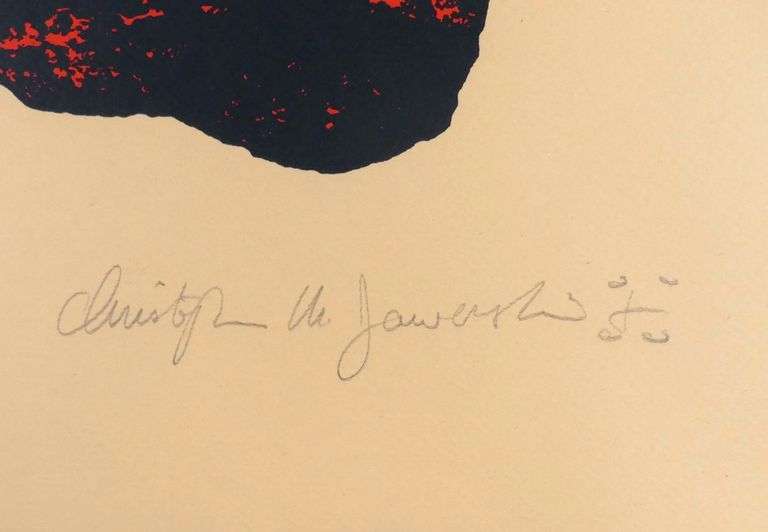 Christopher M. Jaworski